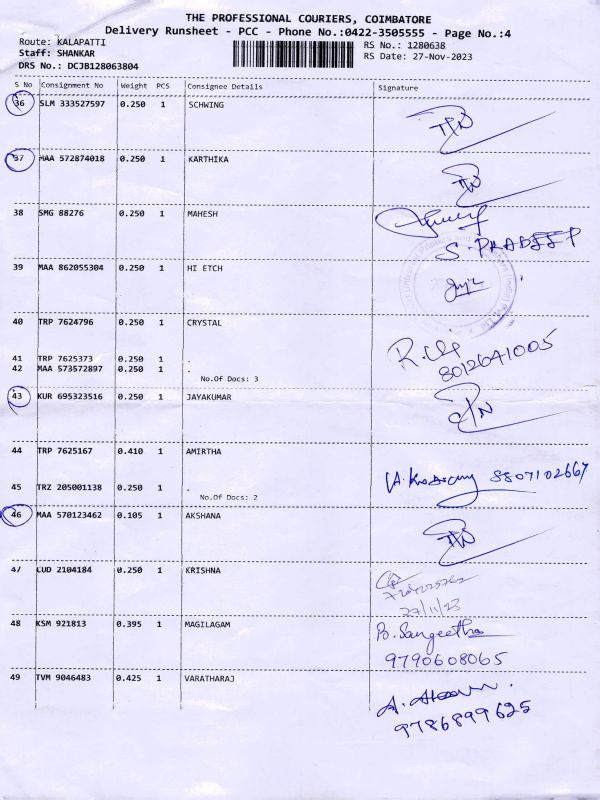 THE PROFESSIONAL COURIERS, COIMBATORE
Delivery Runsheet - PCC - Phone No.:0422-3505555 - Page No.:4
Route: KALAPATTI RS No.: 1280638
Staff: SHANKAR RS Date: 27-Nov-2023
DRS No.: DCJB128063804
S No Consignment No Weight PCS Consignee Details Signature
36 SLM 333527597 0.250 1 SCHWING
37 MAA 572874018 0.250 1 KARTHIKA
38 SMG 88276 0.250 1 MAHESH
S. PRADEEP
39 MAA 862055304 0.250 1 HI ETCH
40 TRP 7624796 0.250 1 CRYSTAL
8012641005
41 TRP 7625373 0.250 1 .
42 MAA 573572897 0.250 1 .
No.Of Docs: 3
43 KUR 695323516 0.250 1 JAYAKUMAR
44 TRP 7625167 0.410 1 AMIRTHA
8807102667
45 TRZ 205001138 0.250 1 .
No.Of Docs: 2
46 MAA 570123462 0.105 1 AKSHANA
47 LUD 2104184 0.250 1 KRISHNA
27/11/23
48 KSM 921813 0.395 1 MAGILAGAM
B. Sangeetha
9790608065
49 TVM 9046483 0.425 1 VARATHARAJ
9786899625